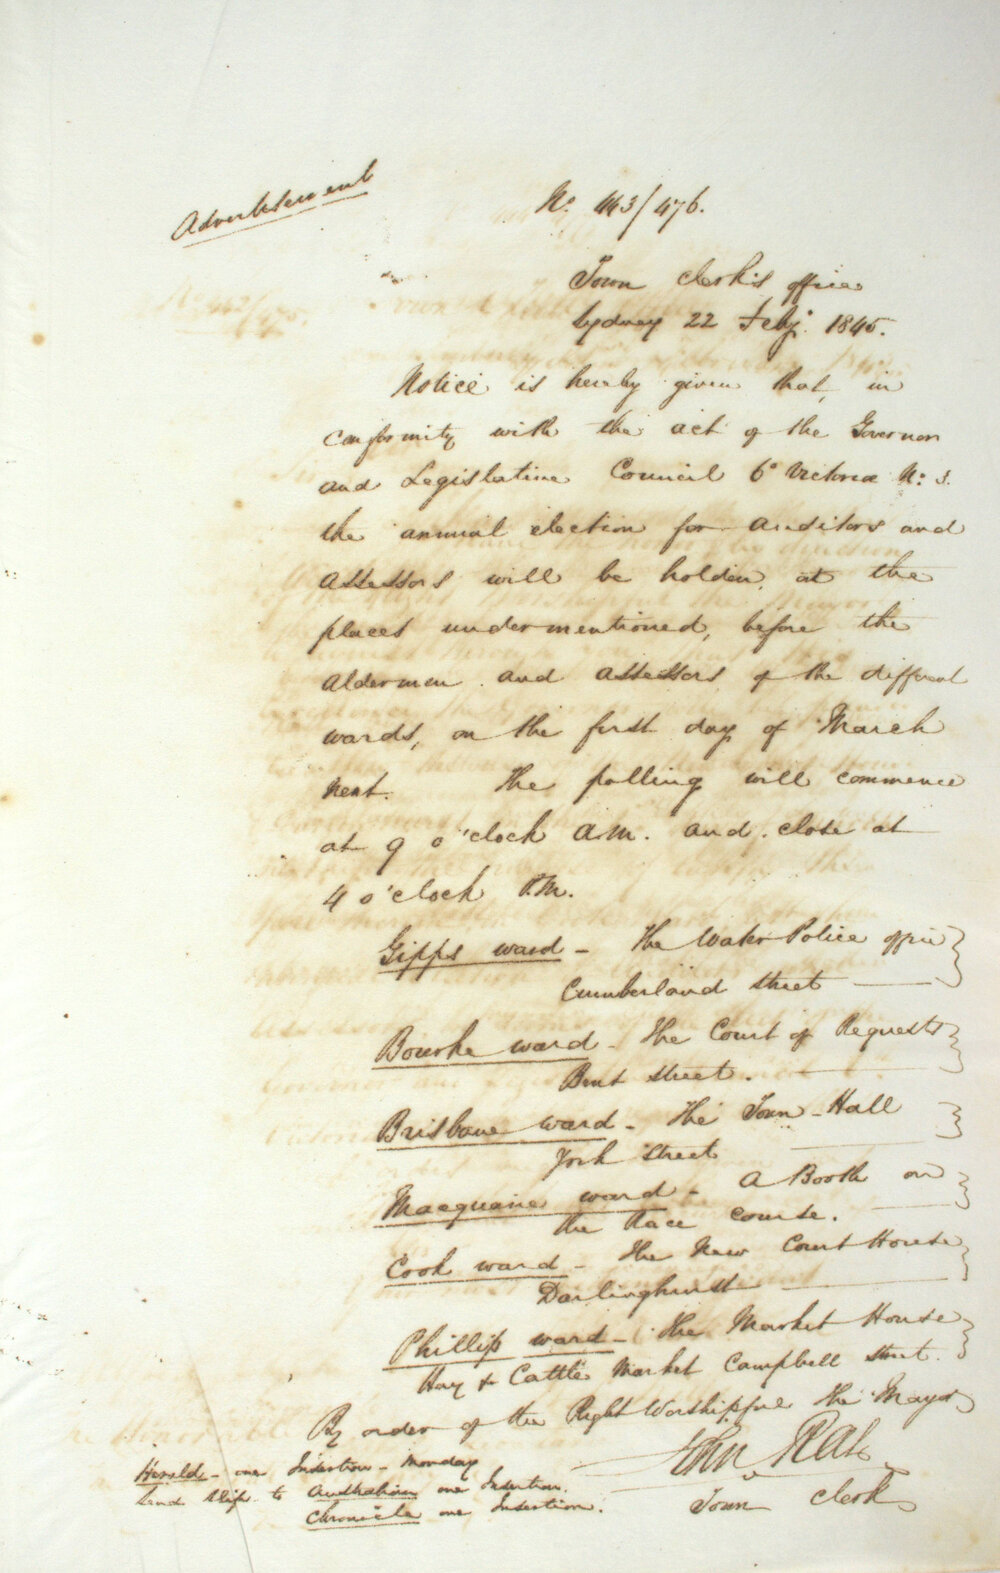 Advertisement
No. 443/476.
Town Clerk's office
Sydney 22 Feby. 1845.
Notice is hereby given that, in
conformity with the act of the Governor
and Legislative Council 6o Victoria No: 3.
the annual election for auditors and
assessors will be holden, at the
places undermentioned, before the
aldermen and assessors of the different
wards, on the first day of March
next. The polling will commence
at 9 o'clock A.M. and close at
4 o'clock P.M.
Gipps ward - The Water Police office
Cumberland street
Bourke ward - The Court of Requests
Bent street.
Brisbane ward - The Town-Hall
York street
Macquarie ward - A Booth on
the Race course.
Cook ward - The New Court House
Darlinghurst
Phillip ward - The Market House
Hay & Cattle Market Campbell street.
By order of the Right Worshipful the Mayor
John Rae
Town Clerk
Herald - one Insertion - Monday
Send slips to Australian one Insertion.
Chronicle one Insertion.